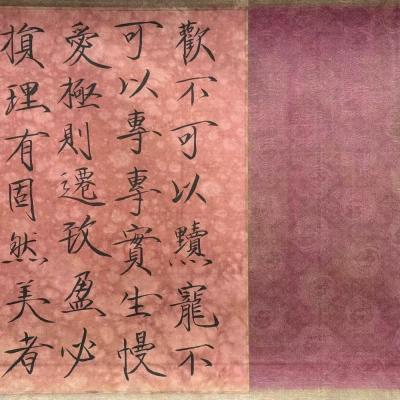 歡不可以黷寵不
可以專專實生慢
愛極則遷致盈必
損理有固然美者